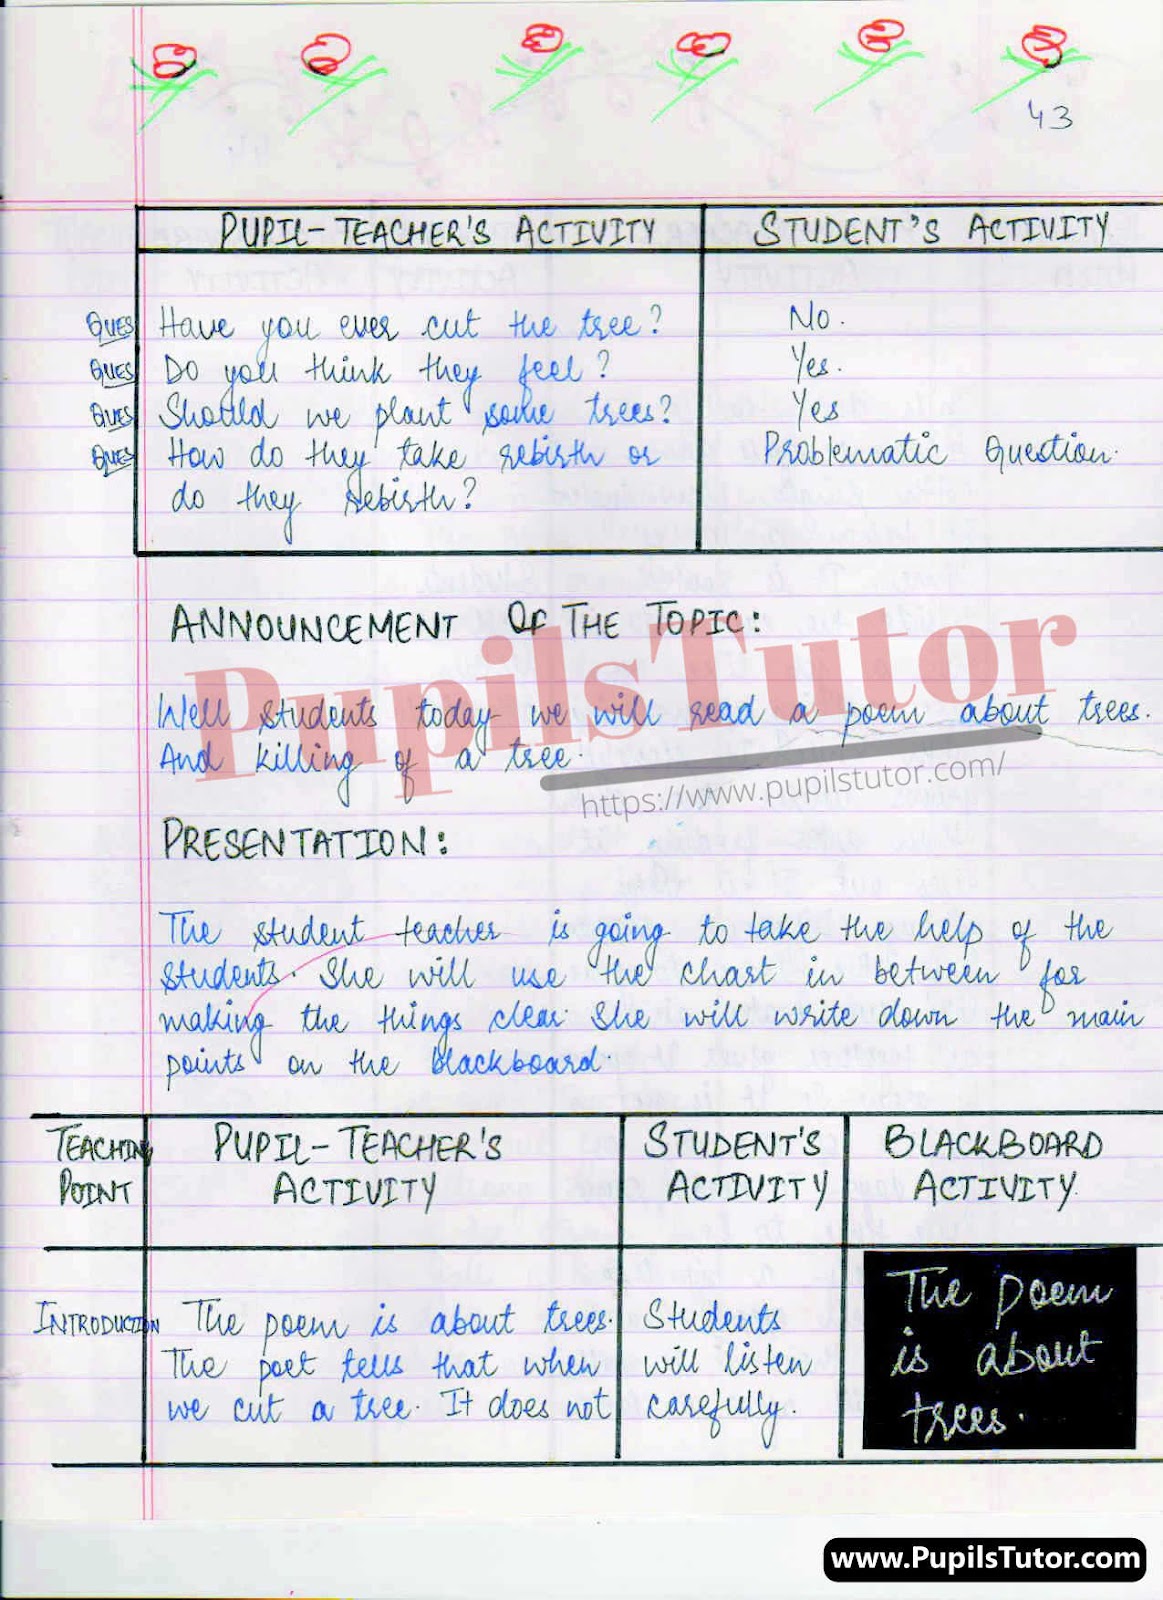 43
PUPIL-TEACHER'S ACTIVITY STUDENT'S ACTIVITY
QUES Have you ever cut the tree? No.
QUES Do you think they feel? Yes.
QUES Should we plant some trees? Yes
QUES How do they take rebirth or Problematic Question.
do they rebirth?
ANNOUNCEMENT OF THE TOPIC:
PupilsTutor
Well students today we will read a poem about trees.
And killing of a tree.
https://www.pupilstutor.com/
PRESENTATION:
The student teacher is going to take the help of the
students. She will use the chart in between for
making the things clear. She will write down the main
points on the blackboard.
TEACHING PUPIL-TEACHER'S STUDENT'S BLACKBOARD
POINT ACTIVITY ACTIVITY ACTIVITY.
INTRODUCTION The poem is about trees. Students The poem
The poet tells that when will listen is about
we cut a tree. It does not carefully. trees.
www.PupilsTutor.com